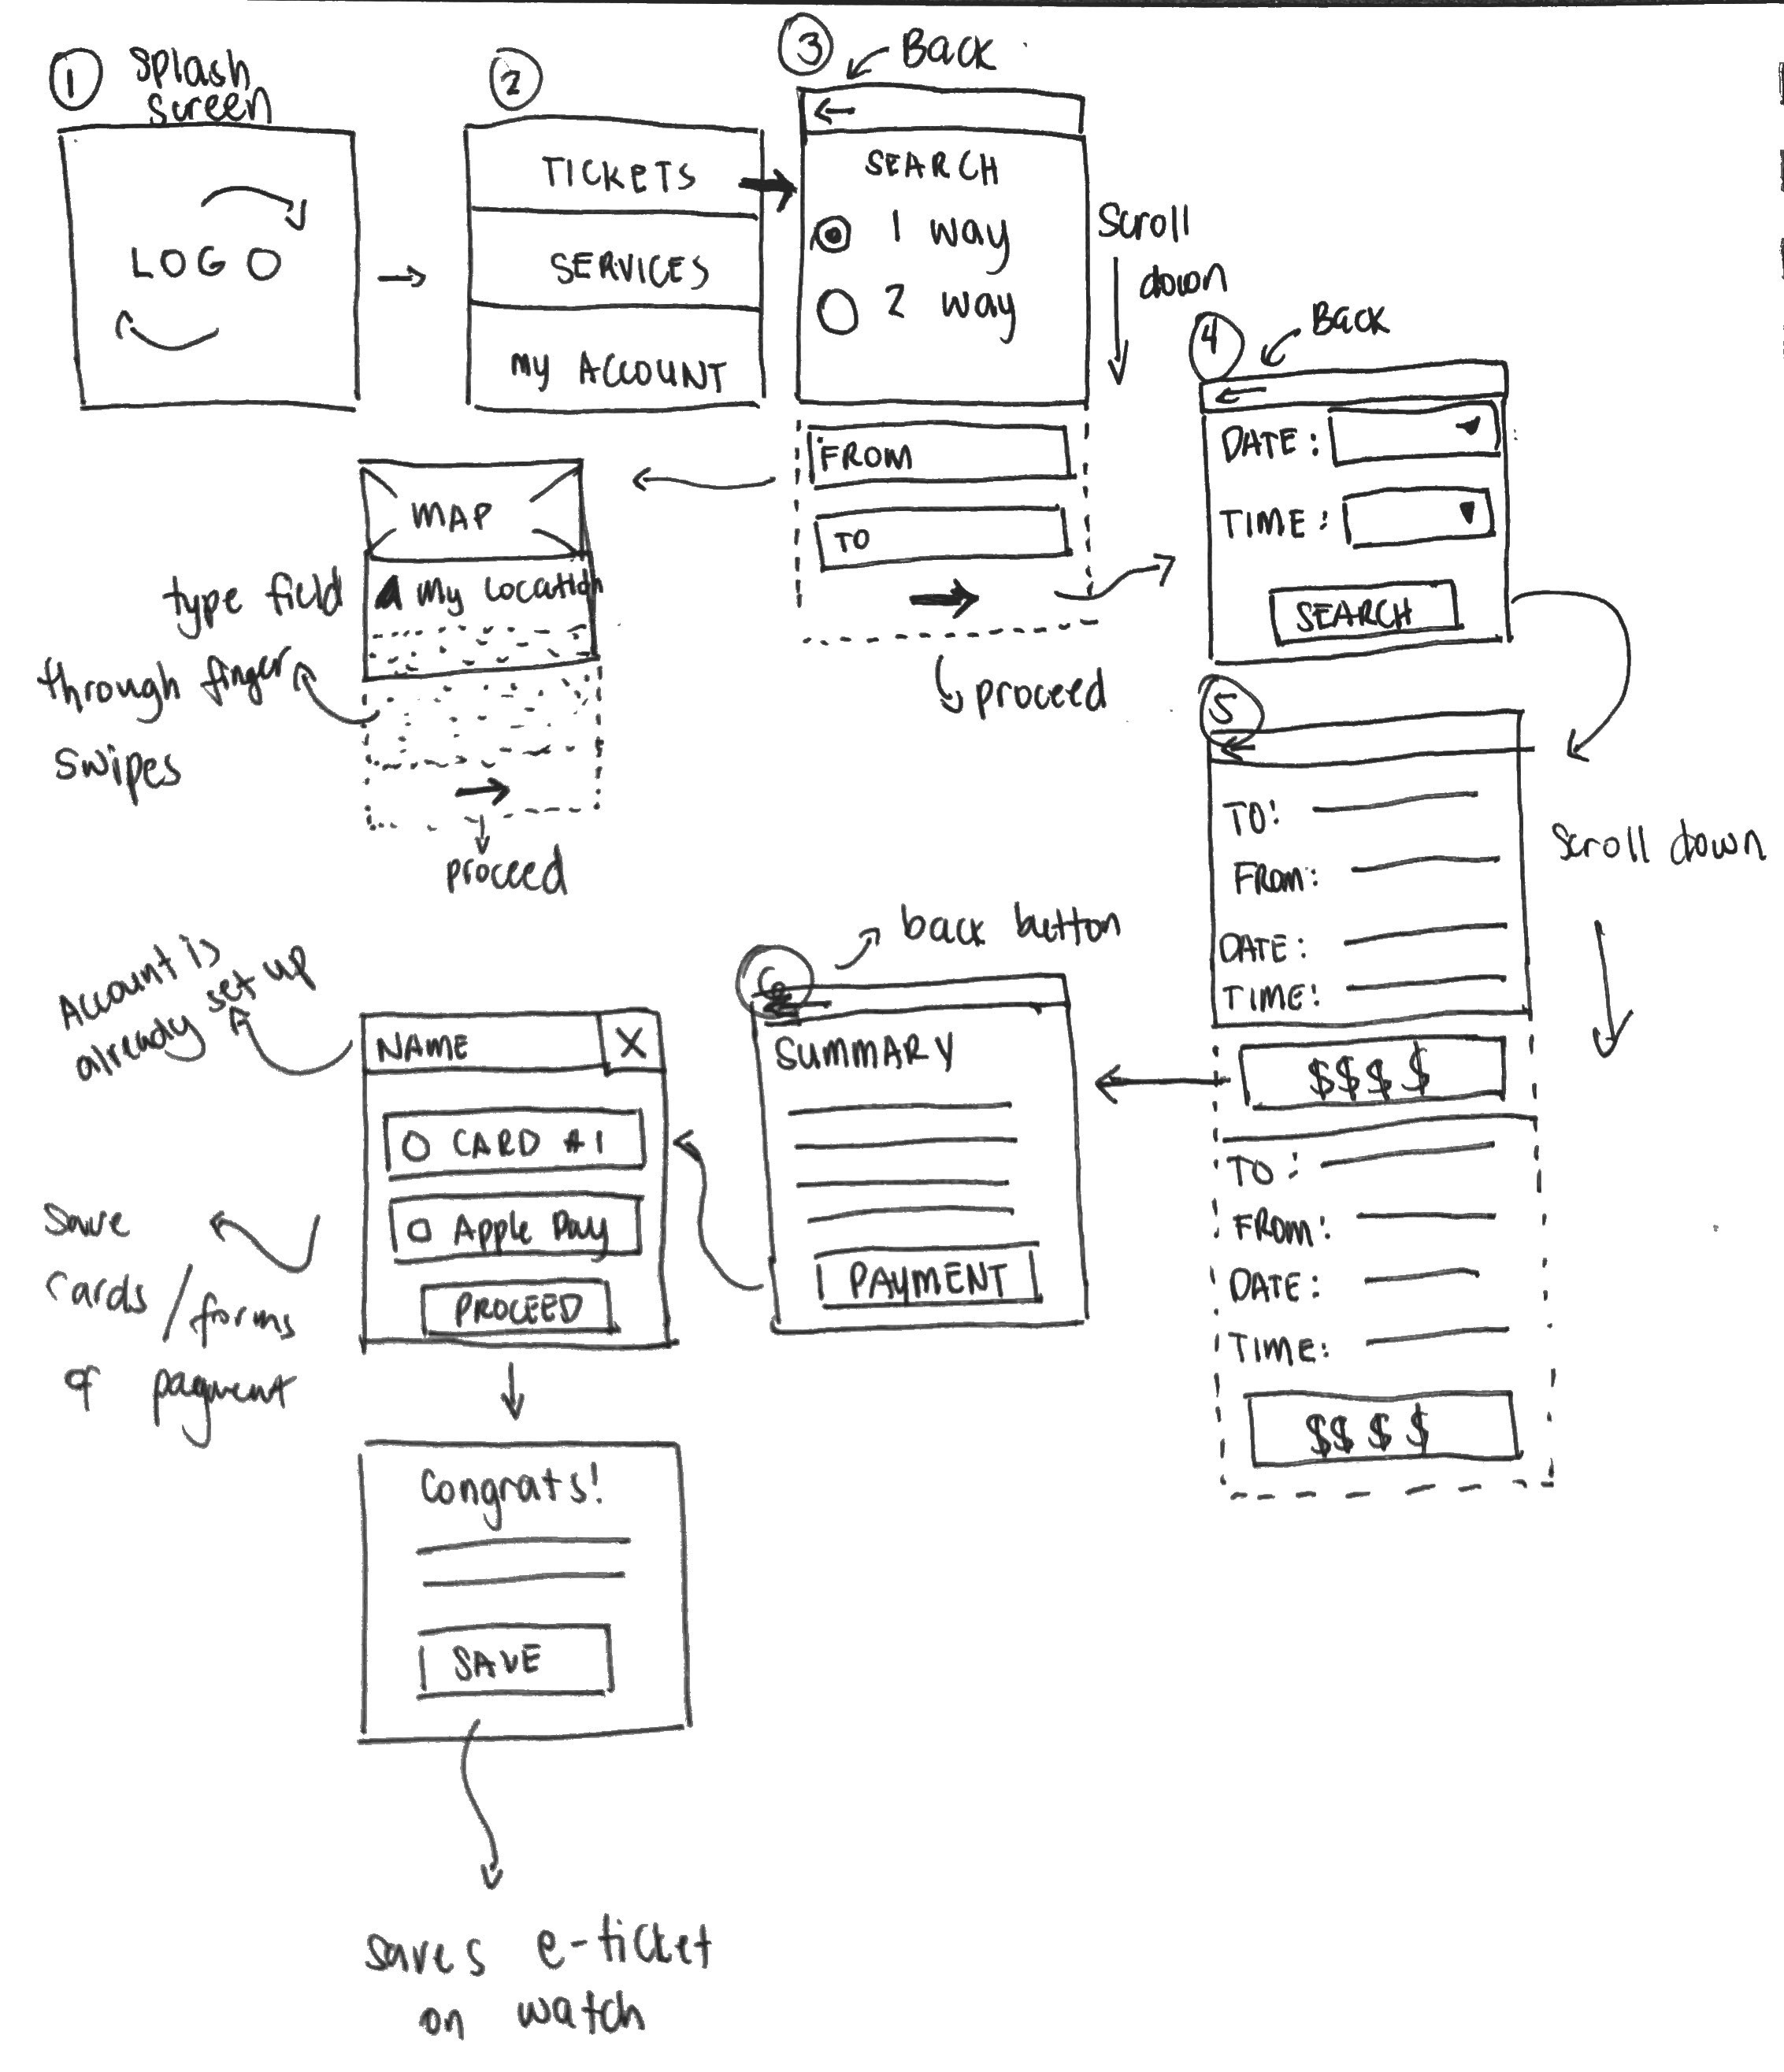 1
Splash
Screen
LOGO
2
TICKETS
SERVICES
MY ACCOUNT
3
Back
SEARCH
1 way
2 way
Scroll
down
FROM
TO
proceed
MAP
My Location
type field
through finger
swipes
proceed
4
Back
DATE:
TIME:
SEARCH
5
TO:
FROM:
DATE:
TIME:
$$$$
Scroll down
TO:
FROM:
DATE:
TIME:
$$$$
6
back button
SUMMARY
PAYMENT
Account is
already set up
NAME
X
CARD #1
Apple Pay
PROCEED
Save
cards/forms
of payment
Congrats!
SAVE
saves e-ticket
on watch